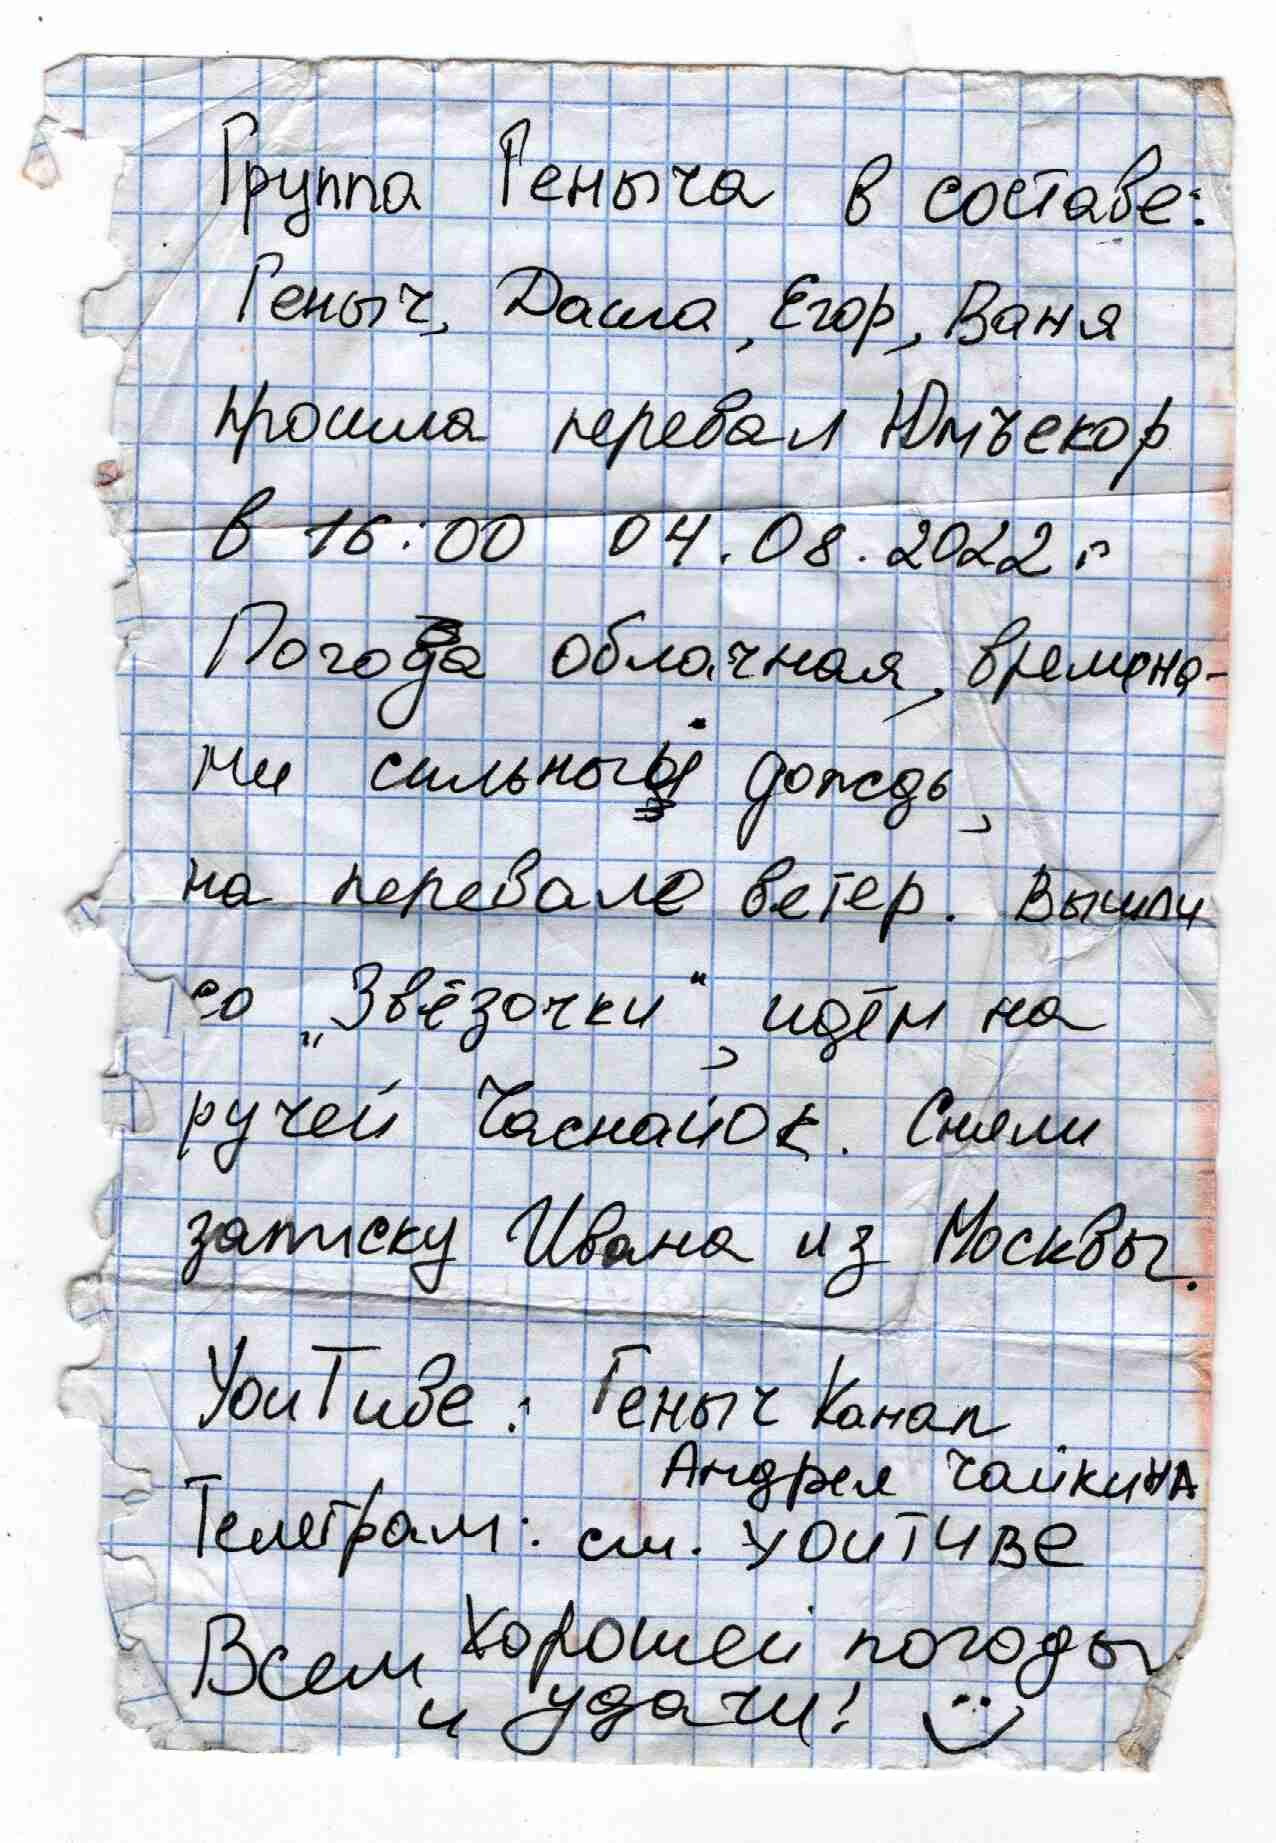 Группа Геныча в составе:
Геныч, Даша, Егор, Ваня
прошла перевал Юмъекор
в 16:00 04.08.2022 г
Погода облачная, времена-
ми сильный дождь,
на перевале ветер. Вышли
со „Звёзочки“, идём на
ручей Часнайок. Сняли
записку Ивана из Москвы.
YouTube: Геныч Канал
Андрея Чайкина
Телеграм: см. YOUTUBE
Всем хорошей погоды
и удачи!